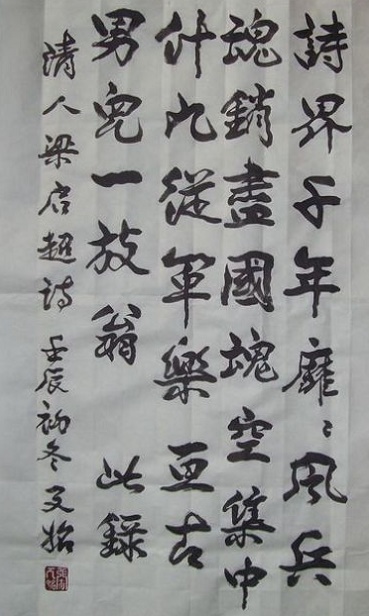 詩界千年靡〻風兵
魂銷盡國魂空集中
什九從軍樂亘古
男兒一放翁 此錄
清人梁启超詩 壬辰初冬